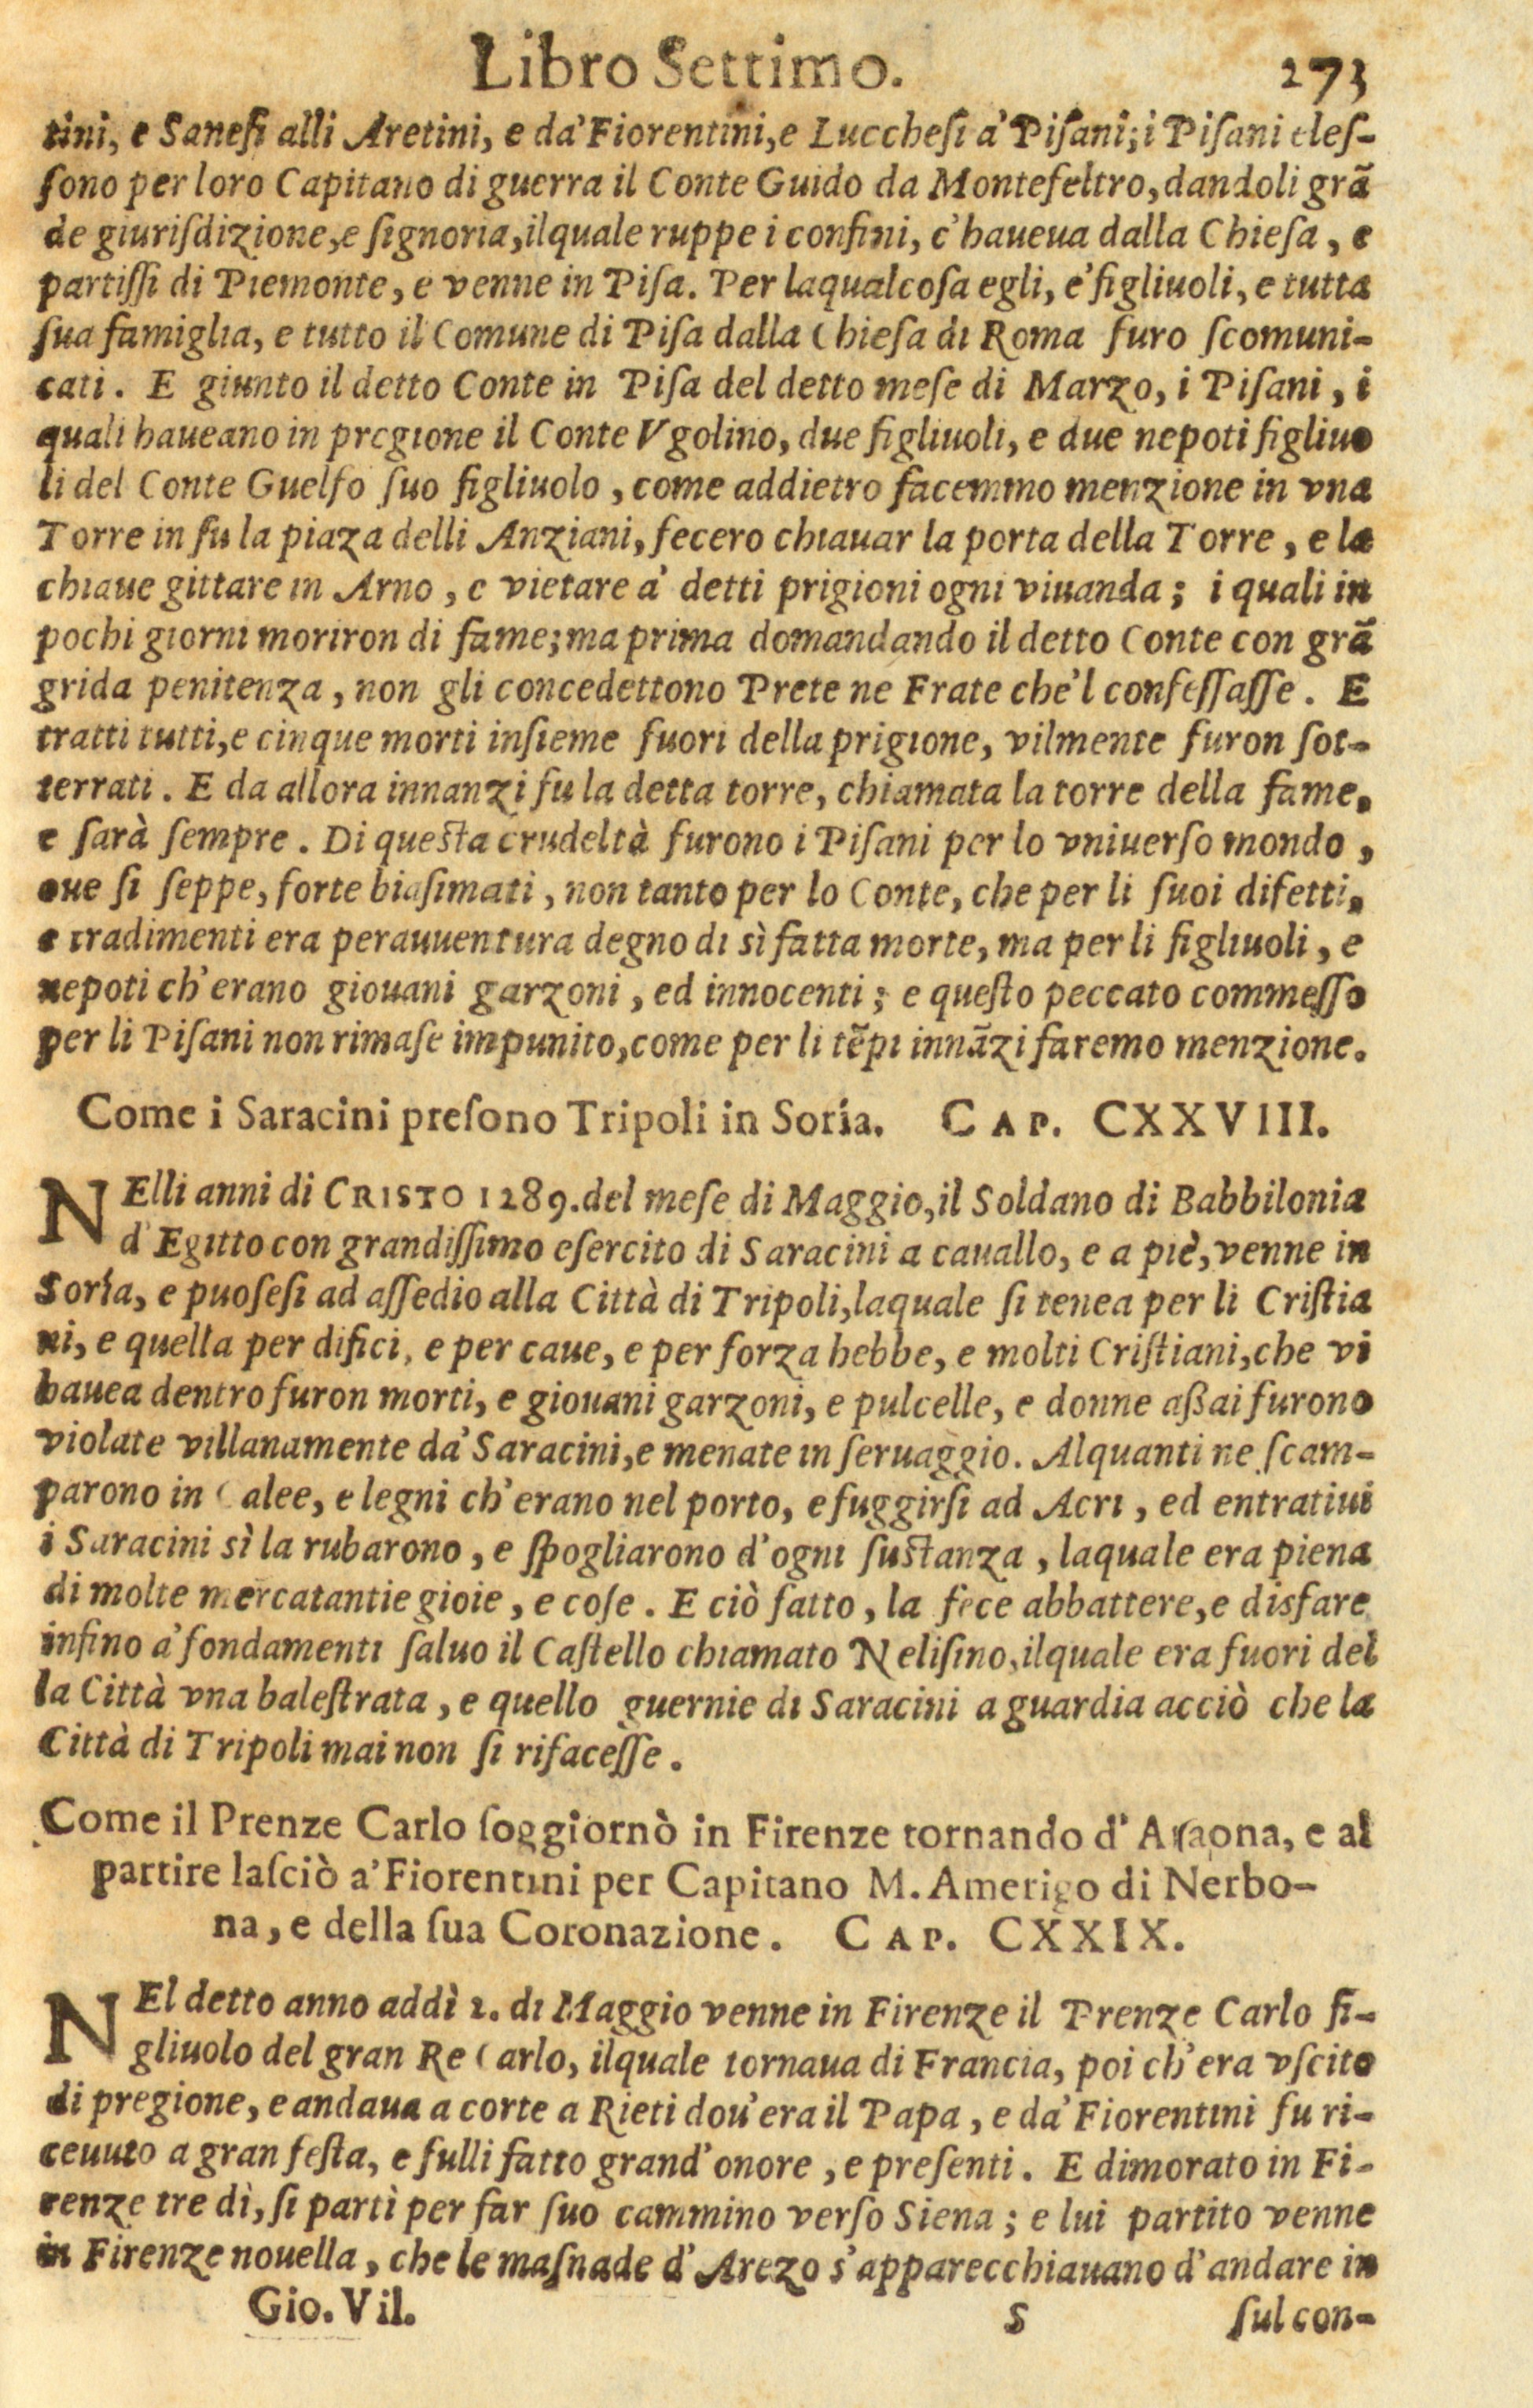 Libro Settimo. 273
tini, e Saneſi alli Aretini, e da' Fiorentini, e Luccheſi a' Piſani; i Piſani eleſ-
ſono per loro Capitano di guerra il Conte Guido da Montefeltro, dandoli grã
de giuriſdizione, e ſignoria, ilquale ruppe i confini, c'haueua dalla Chieſa, e
partiſſi di Piemonte, e venne in Piſa. Per laqualcoſa egli, e' figliuoli, e tutta
ſua famiglia, e tutto il Comune di Piſa dalla Chieſa di Roma furo ſcomuni-
cati. E giunto il detto Conte in Piſa del detto meſe di Marzo, i Piſani, i
quali haueano in pregione il Conte Vgolino, due figliuoli, e due nepoti figliuo
li del Conte Guelfo ſuo figliuolo, come addietro facemmo menzione in vna
Torre in ſu la piaza delli Anziani, fecero chiauar la porta della Torre, e la
chiaue gittare in Arno, e vietare a' detti prigioni ogni viuanda; i quali in
pochi giorni moriron di fame; ma prima domandando il detto Conte con grã
grida penitenza, non gli concedettono Prete ne Frate che'l confeſſaſſe. E
tratti tutti, e cinque morti inſieme fuori della prigione, vilmente furon ſot-
terrati. E da allora innanzi fu la detta torre, chiamata la torre della fame,
e ſarà ſempre. Di queſta crudeltà furono i Piſani per lo vniuerſo mondo,
oue ſi ſeppe, forte biaſimati, non tanto per lo Conte, che per li ſuoi difetti,
e tradimenti era perauuentura degno di sì fatta morte, ma per li figliuoli, e
nepoti ch'erano giouani garzoni, ed innocenti; e queſto peccato commeſſo
per li Piſani non rimaſe impunito, come per li tẽpi innãzi faremo menzione.
Come i Saracini preſono Tripoli in Soria. CAP. CXXVIII.
NElli anni di CRISTO 1289. del meſe di Maggio, il Soldano di Babbilonia
d'Egitto con grandiſſimo eſercito di Saracini a cauallo, e a piè, venne in
Soria, e puoſeſi ad aſſedio alla Città di Tripoli, laquale ſi tenea per li Criſtia
ni, e quella per difici, e per caue, e per forza hebbe, e molti Criſtiani, che vi
hauea dentro furon morti, e giouani garzoni, e pulcelle, e donne aßai furono
violate villanamente da' Saracini, e menate in ſeruaggio. Alquanti ne ſcam-
parono in Galee, e legni ch'erano nel porto, e fuggirſi ad Acri, ed entratiui
i Saracini sì la rubarono, e ſpogliarono d'ogni ſuſtanza, laquale era piena
di molte mercatantie gioie, e coſe. E ciò fatto, la fece abbattere, e disfare
infino a' fondamenti ſaluo il Caſtello chiamato Neliſino, ilquale era fuori del
la Città vna baleſtrata, e quello guernie di Saracini a guardia acciò che la
Città di Tripoli mai non ſi rifaceſſe.
Come il Prenze Carlo ſoggiornò in Firenze tornando d'Araona, e al
partire laſciò a' Fiorentini per Capitano M. Amerigo di Nerbo-
na, e della ſua Coronazione. CAP. CXXIX.
NEl detto anno addì 2. di Maggio venne in Firenze il Prenze Carlo fi-
gliuolo del gran Re Carlo, ilquale tornaua di Francia, poi ch'era vſcito
di pregione, e andaua a corte a Rieti dou'era il Papa, e da' Fiorentini fu ri-
ceuuto a gran feſta, e fulli fatto grand'onore, e preſenti. E dimorato in Fi-
renze tre dì, ſi partì per far ſuo cammino verſo Siena; e lui partito venne
in Firenze nouella, che le maſnade d'Arezo s'apparecchiauano d'andare in
Gio. Vil. S ſul con-